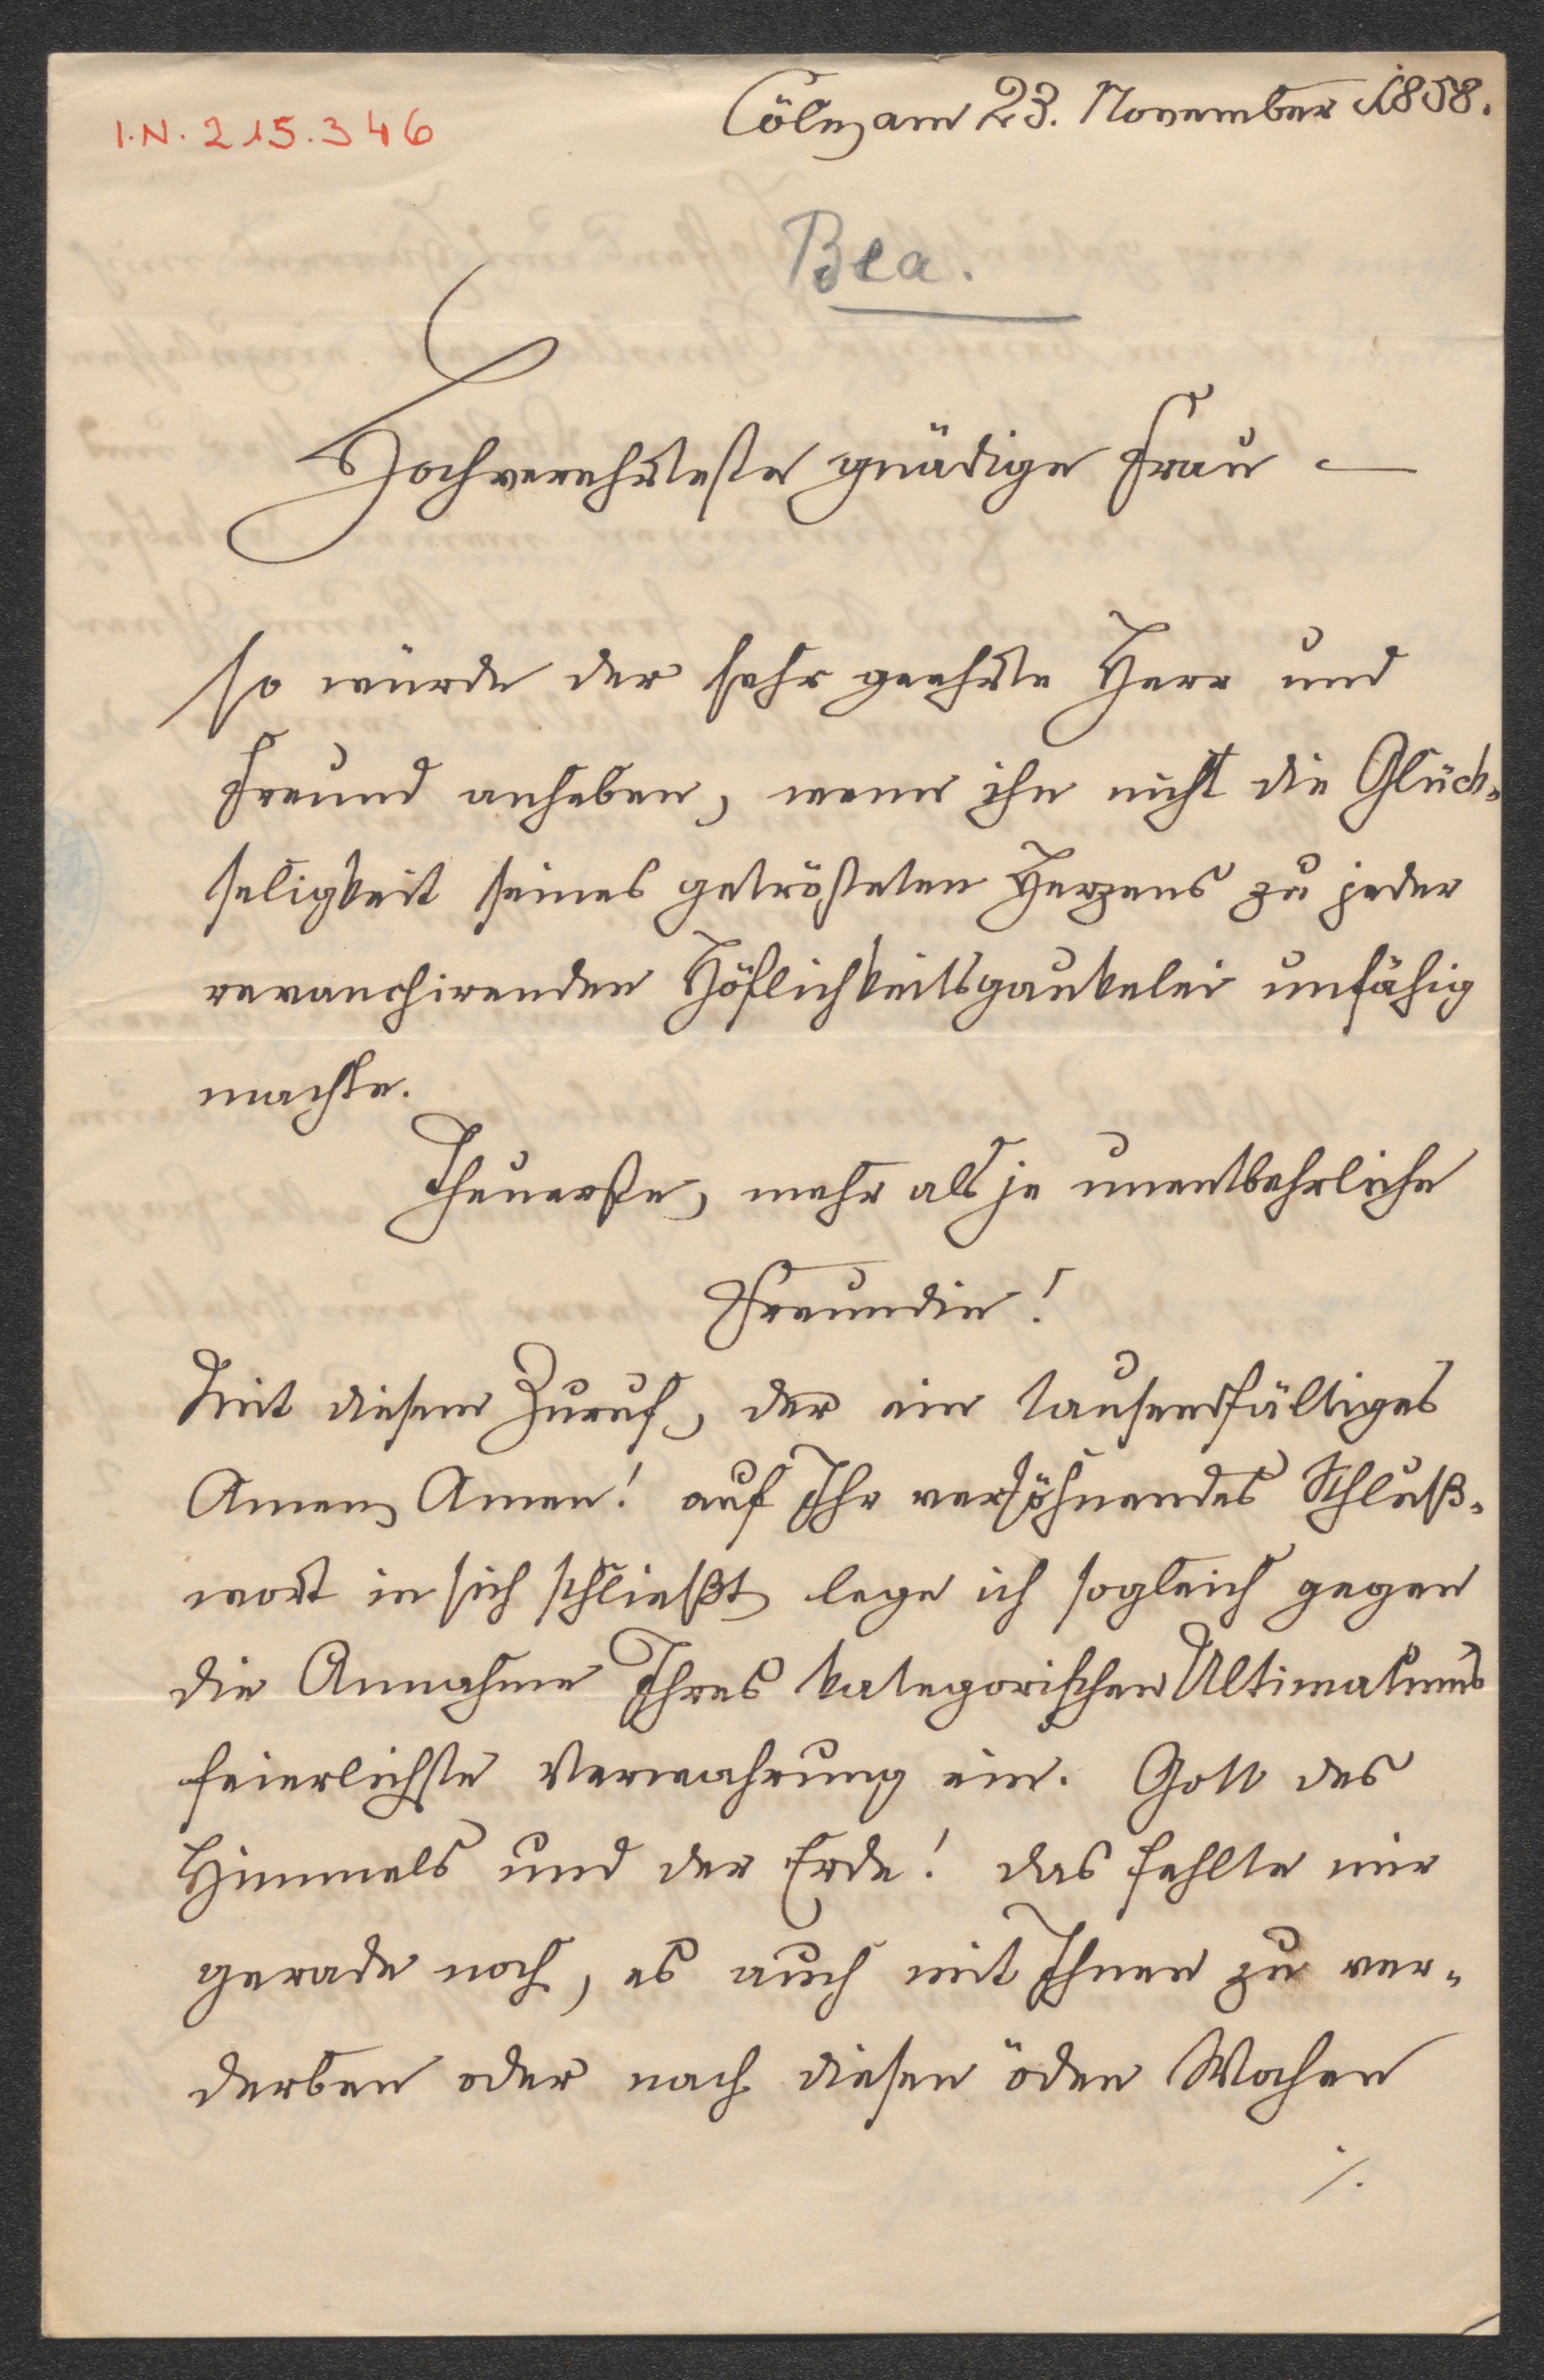 I.N. 215.346
Cöln, am 23. November 1858.
Bea.
Hochverehrteste gnädige Frau —
so würde der sehr geehrte Herr und
Freund anheben, wenn ihn nicht die Glück-
seligkeit seines getrösteten Herzens zu jeder
revanchirenden Höflichkeitsgaukelei unfähig
machte.
Theuerste, mehr als je unentbehrliche
Freundin!
Mit diesem Zuruf, der ein tausendfältiges
Amen, Amen! auf Ihr versöhnendes Schluß-
wort in sich schließt, lege ich sogleich gegen
die Annahme Ihres kategorischen Ultimatums
feierlichste Verwahrung ein. Gott des
Himmels und der Erde! das fehlte mir
gerade noch, es auch mit Ihnen zu ver-
derben oder nach diesen öden Wochen
./.